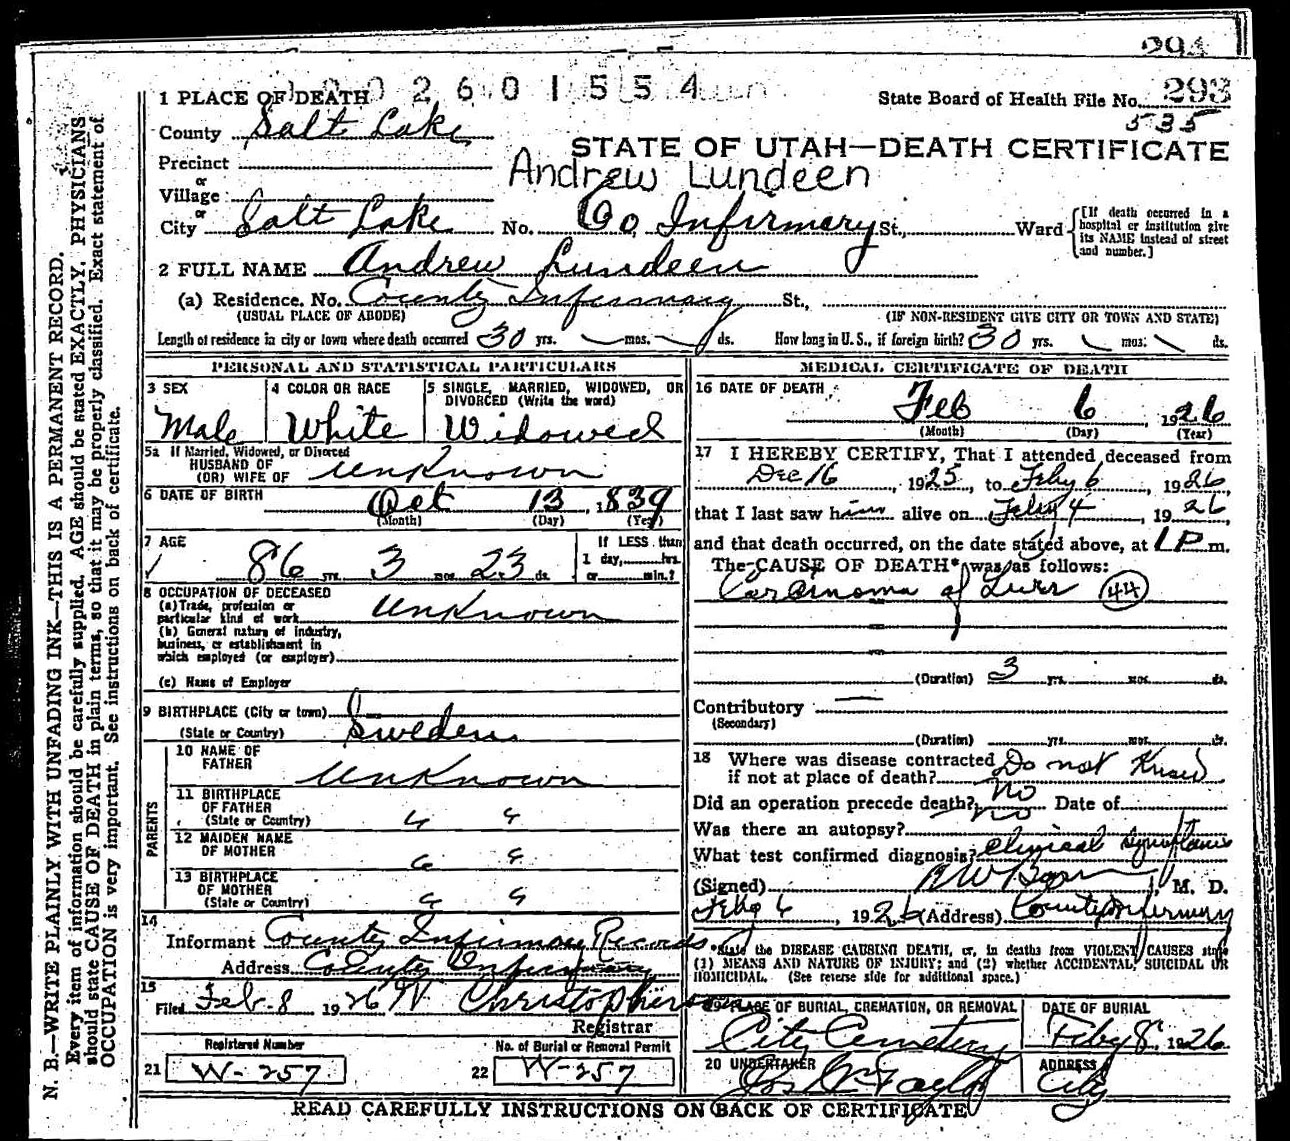 294
0 2 6 0 1 5 5 4
1 PLACE OF DEATH
State Board of Health File No. 293
535
County Salt Lake
STATE OF UTAH—DEATH CERTIFICATE
Precinct
Andrew Lundeen
or
Village
or
City Salt Lake No. Co Infirmery St., Ward
[If death occurred in a hospital or institution give its NAME instead of street and number.]
2 FULL NAME Andrew Lundeen
(a) Residence. No. County Infirmary St.,
(USUAL PLACE OF ABODE) (IF NON-RESIDENT GIVE CITY OR TOWN AND STATE)
Length of residence in city or town where death occurred 30 yrs. — mos. — ds. How long in U. S., if foreign birth? 30 yrs. mos. ds.
PERSONAL AND STATISTICAL PARTICULARS
3 SEX
Male
4 COLOR OR RACE
White
5 SINGLE, MARRIED, WIDOWED, OR
DIVORCED (Write the word)
Widowed
5a If Married, Widowed, or Divorced
HUSBAND OF
(OR) WIFE OF Unknown
6 DATE OF BIRTH Oct 13 1839
(Month) (Day) (Year)
7 AGE
86 yrs. 3 mos. 23 ds.
If LESS than
1 day,......hrs.
or......min.?
8 OCCUPATION OF DECEASED
(a) Trade, profession or
particular kind of work Unknown
(b) General nature of industry,
business, or establishment in
which employed (or employer)
(c) Name of Employer
9 BIRTHPLACE (City or town)
(State or Country) Sweden
PARENTS
10 NAME OF
FATHER Unknown
11 BIRTHPLACE
OF FATHER
(State or Country) " "
12 MAIDEN NAME
OF MOTHER " "
13 BIRTHPLACE
OF MOTHER
(State or Country) " "
14
Informant County Infirmary Records
Address County Infirmary
15
Filed Feb-8 1926 W Christopherson
Registrar
Registered Number No. of Burial or Removal Permit
21 W-257 22 W-257
MEDICAL CERTIFICATE OF DEATH
16 DATE OF DEATH
Feb 6 1926
(Month) (Day) (Year)
17 I HEREBY CERTIFY, That I attended deceased from
Dec 16, 1925, to Feby 6, 1926,
that I last saw him alive on Feby 4, 1926,
and that death occurred, on the date stated above, at 1 P m.
The CAUSE OF DEATH* was as follows:
Carcinoma of 44
(Duration) 3 yrs. mos. ds.
Contributory —
(Secondary)
(Duration) yrs. mos. ds.
18 Where was disease contracted
if not at place of death? Do not Know
Did an operation precede death? no Date of
Was there an autopsy? no
What test confirmed diagnosis? Clinical Symptoms
(Signed) M. D.
Feby 6, 1926 (Address) County Infirmary
*State the DISEASE CAUSING DEATH, or, in deaths from VIOLENT CAUSES state
(1) MEANS AND NATURE OF INJURY; and (2) whether ACCIDENTAL, SUICIDAL OR
HOMICIDAL. (See reverse side for additional space.)
19 PLACE OF BURIAL, CREMATION, OR REMOVAL
City Cemetery
DATE OF BURIAL
Feby 8, 1926
20 UNDERTAKER
Jos Wm Taylor
ADDRESS
City
READ CAREFULLY INSTRUCTIONS ON BACK OF CERTIFICATE
N. B.—WRITE PLAINLY WITH UNFADING INK—THIS IS A PERMANENT RECORD.
Every item of information should be carefully supplied. AGE should be stated EXACTLY. PHYSICIANS
should state CAUSE OF DEATH in plain terms, so that it may be properly classified. Exact statement of
OCCUPATION is very important. See instructions on back of certificate.